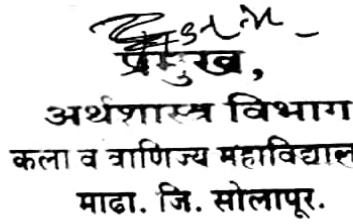 प्रमुख,
अर्थशास्त्र विभाग
कला व वाणिज्य महाविद्याल
माढा. जि. सोलापूर.